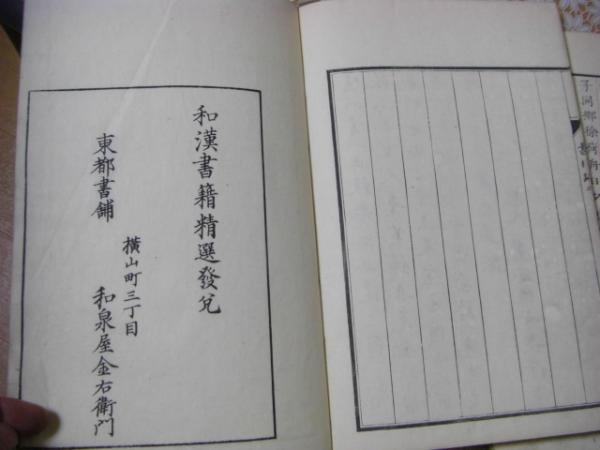 和漢書籍精選發兌
東都書舗
横山町三丁目
和泉屋金右衛門